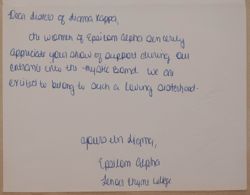 Dear Sisters of Sigma Kappa,
The women of Epsilon Alpha sincerely
appreciate your show of support during our
entrance into the Mystic Bond. We are
excited to belong to such a loving sisterhood.
Yours in Sigma,
Epsilon Alpha
Lenoir Rhyne College